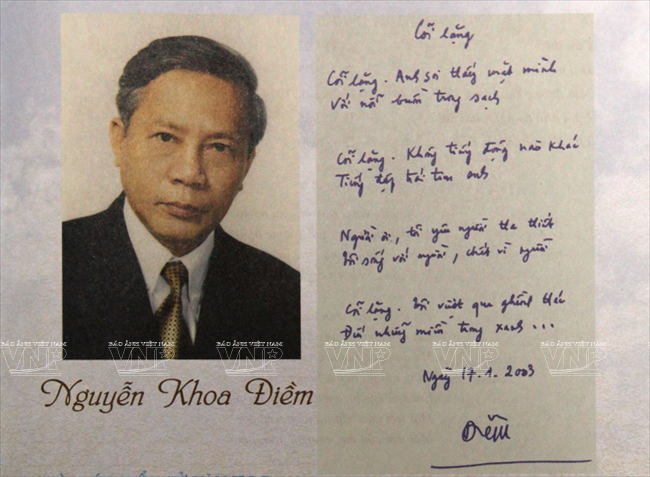 Cõi lặng
Cõi lặng. Anh soi thấy mặt mình
Với nỗi buồn trong sạch
Cõi lặng. Không tiếng động nào khác
Tiếng đập trái tim anh
Người ơi, tôi yêu người tha thiết
Tôi sống với người, chết vì người
Cõi lặng. Tôi vượt qua ghềnh thác
Đến những miền từng xanh ...
Ngày 17.1.2003
Điềm
Nguyễn Khoa Điềm
BÁO ẢNH VIỆT NAM
VNP
BÁO ẢNH VIỆT NAM
VNP
BÁO ẢNH VIỆT NAM
VNP
BÁO ẢNH VIỆT NAM
VNP